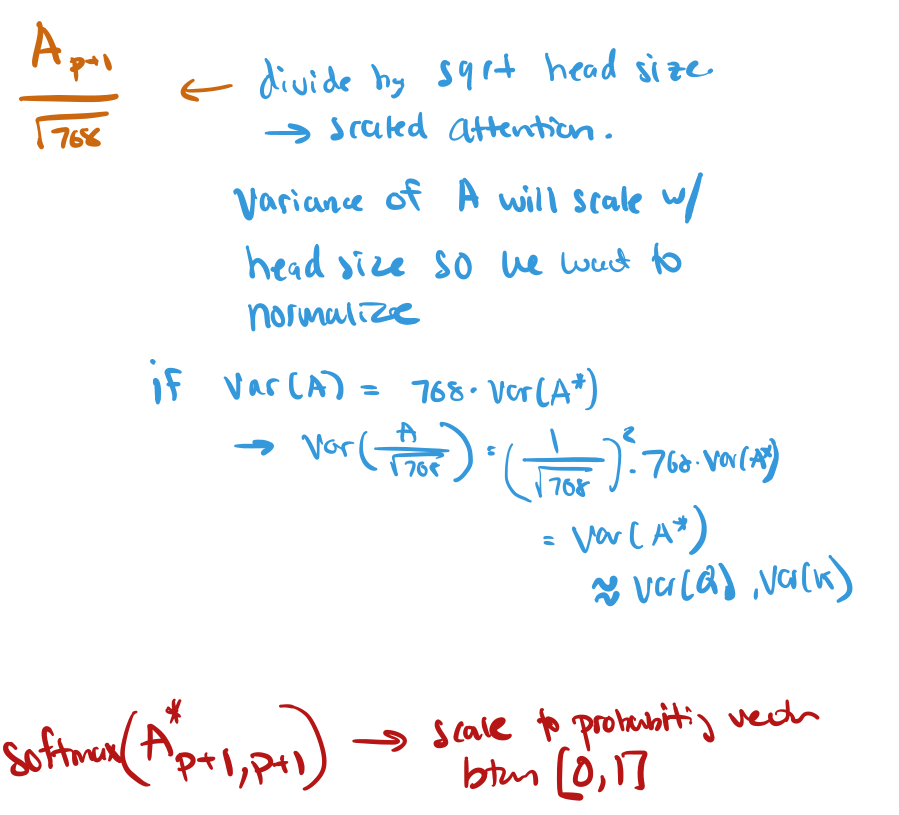 A p+1
√768
← divide by sqrt head size
→ scaled attention.
Variance of A will scale w/
head size so we want to
normalize
if Var(A) = 768 · Var(A*)
→ Var(A/√768) = (1/√768)². 768 · Var(A*)
= Var(A*)
≈ Var(Q), Var(K)
softmax(A* p+1, p+1) → scale to probability vector
btwn [0, 1]